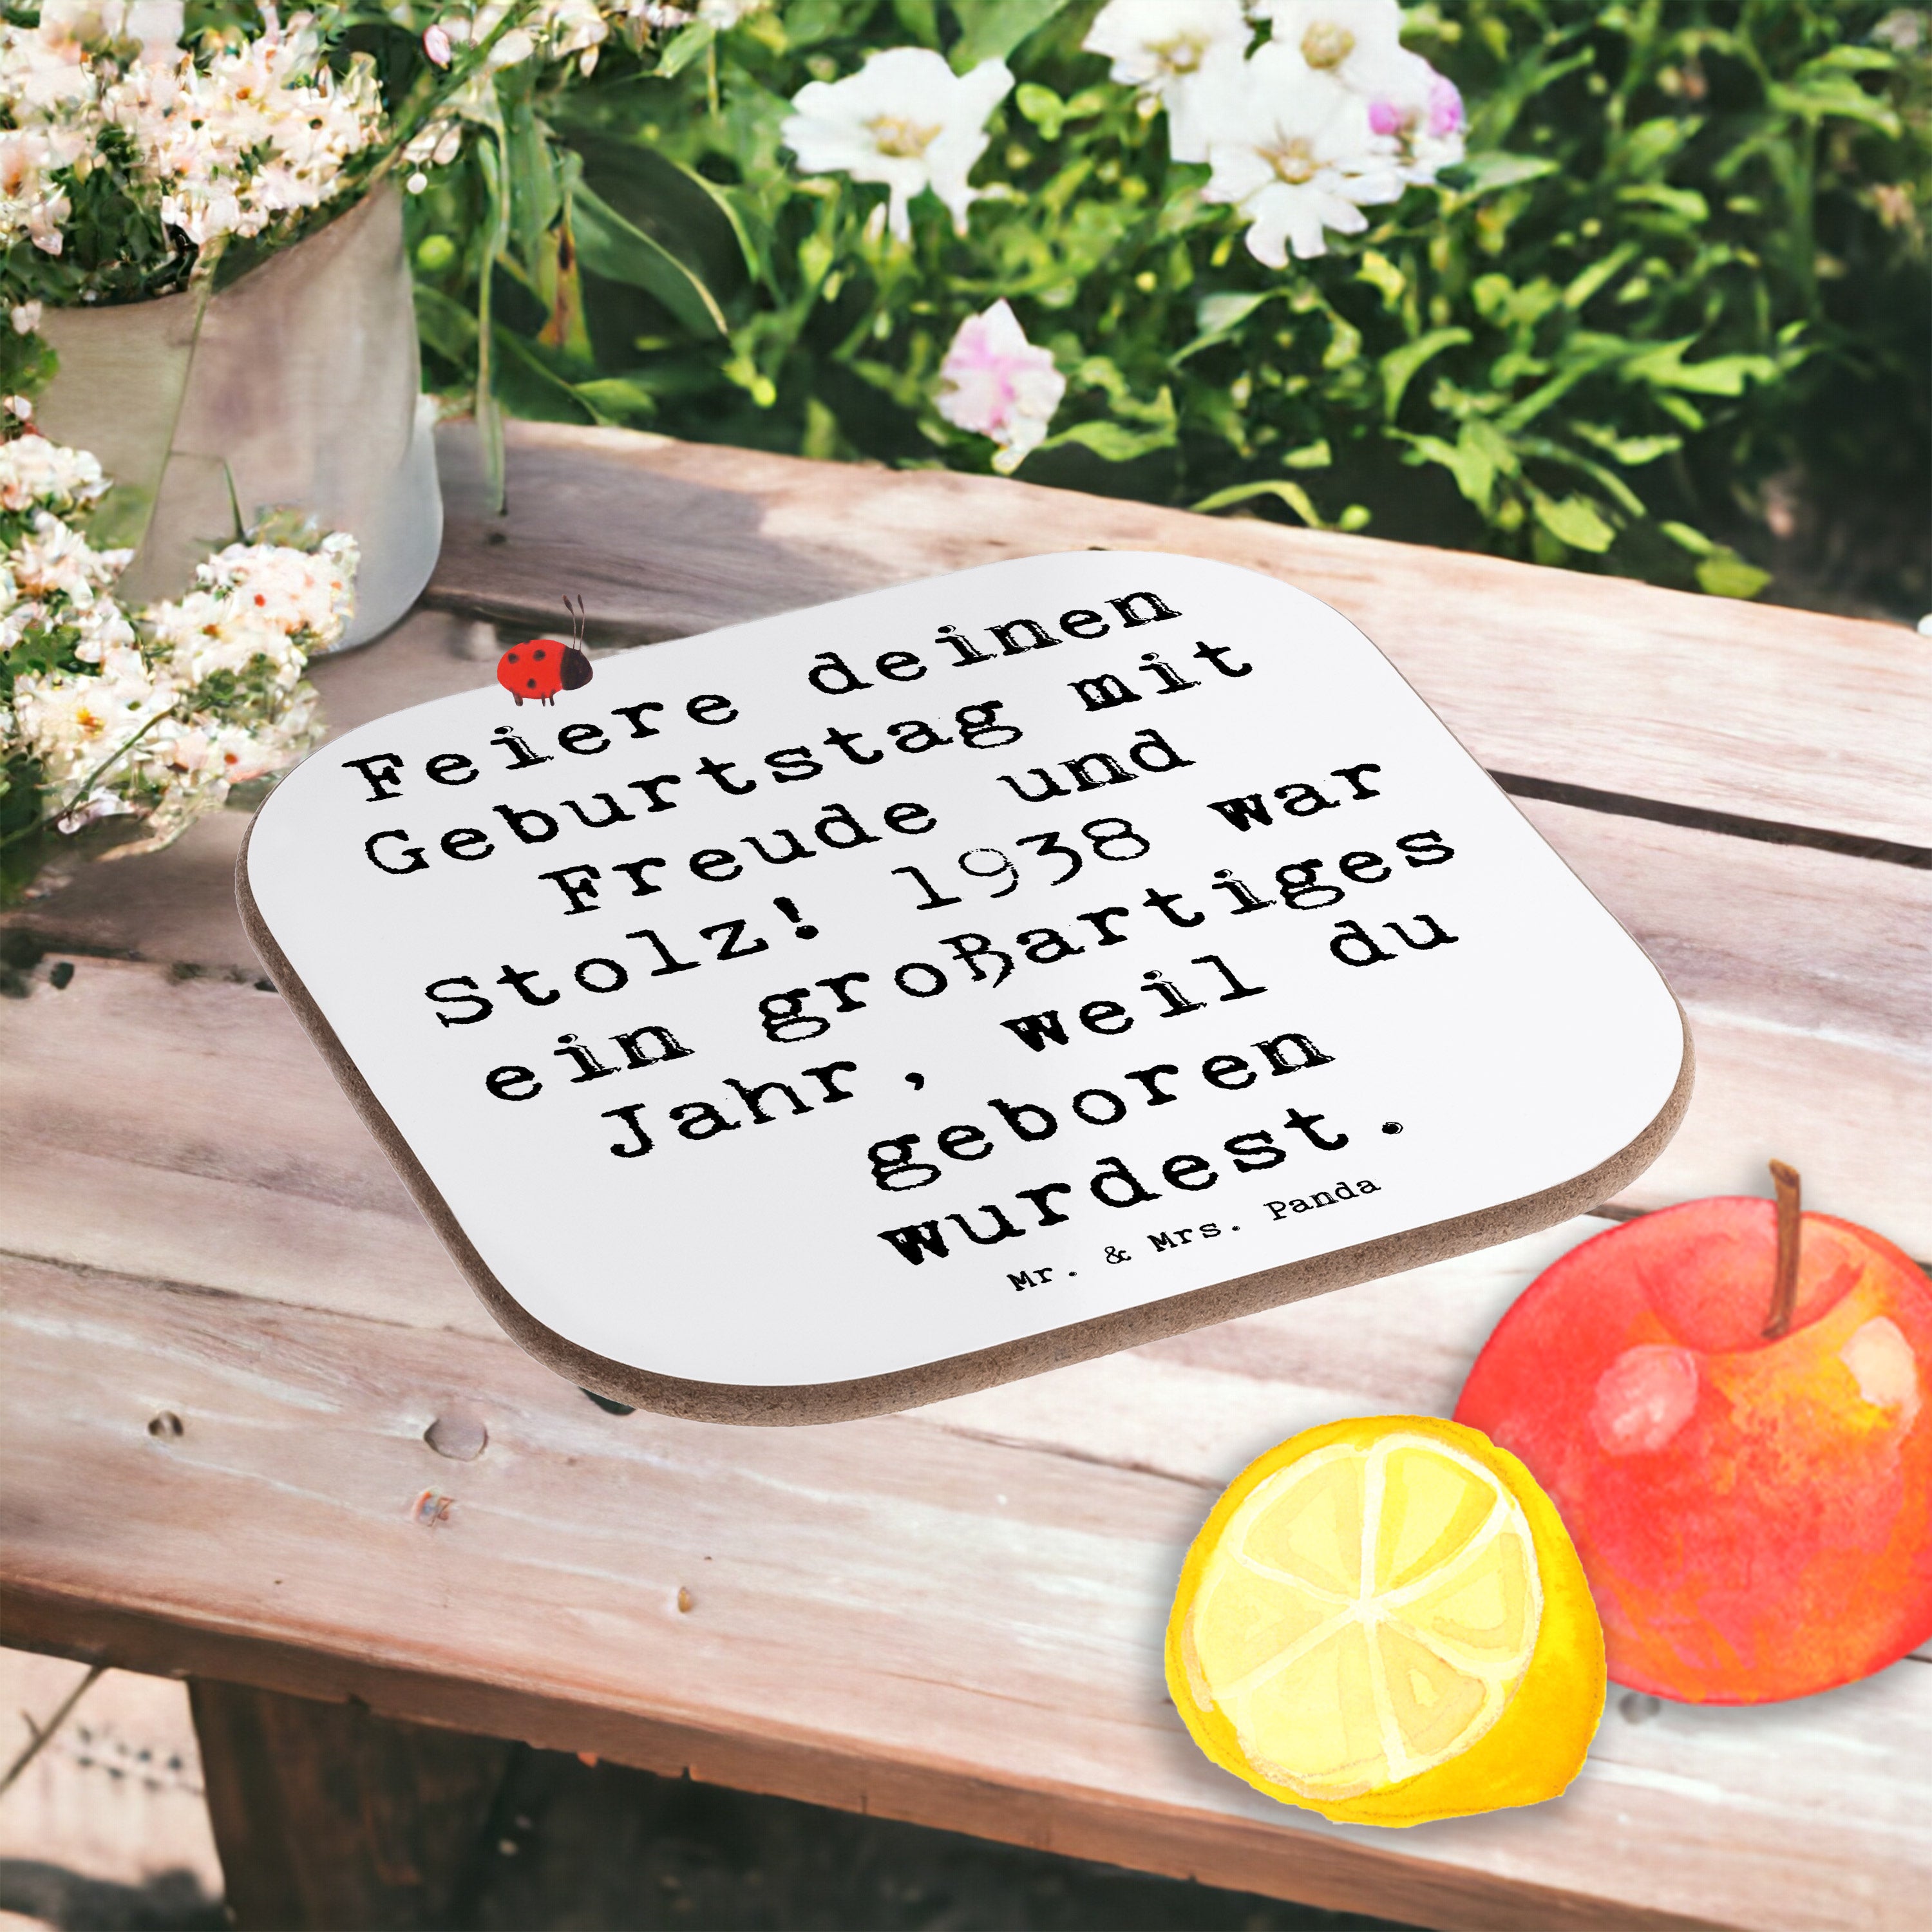 Feiere deinen
Geburtstag mit
Freude und
Stolz! 1938 war
ein großartiges
Jahr, weil du
geboren
wurdest.
Mr. & Mrs. Panda